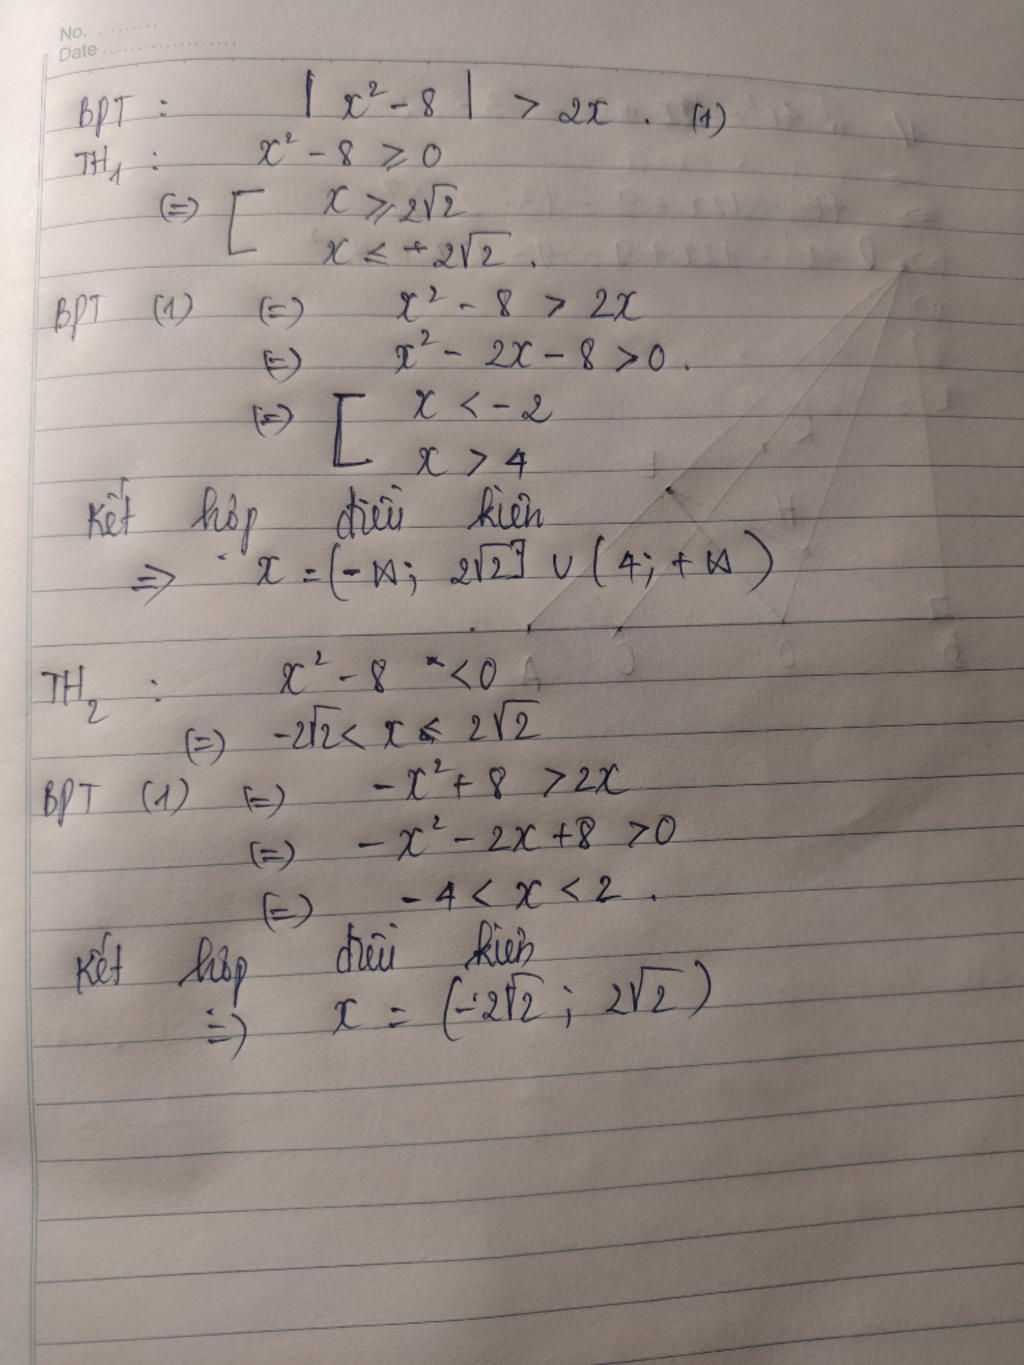 No. ..........
Date ......................
BPT : | x² - 8 | > 2x . (1)
TH₁ : x² - 8 ⩾ 0
(=) [ x ⩾ 2√2
x ⩽ + 2√2 .
BPT (1) (=) x² - 8 > 2x
(=) x² - 2x - 8 > 0 .
(=) [ x < - 2
x > 4
Kết hợp điều kiện
=> x = (-∞; 2√2] ∪ (4; +∞)
TH₂ : x² - 8 < 0
(=) -2√2 < x < 2√2
BPT (1) (=) - x² + 8 > 2x
(=) - x² - 2x + 8 > 0
(=) - 4 < x < 2 .
Kết hợp điều kiện
=> x = (-2√2 ; 2√2)